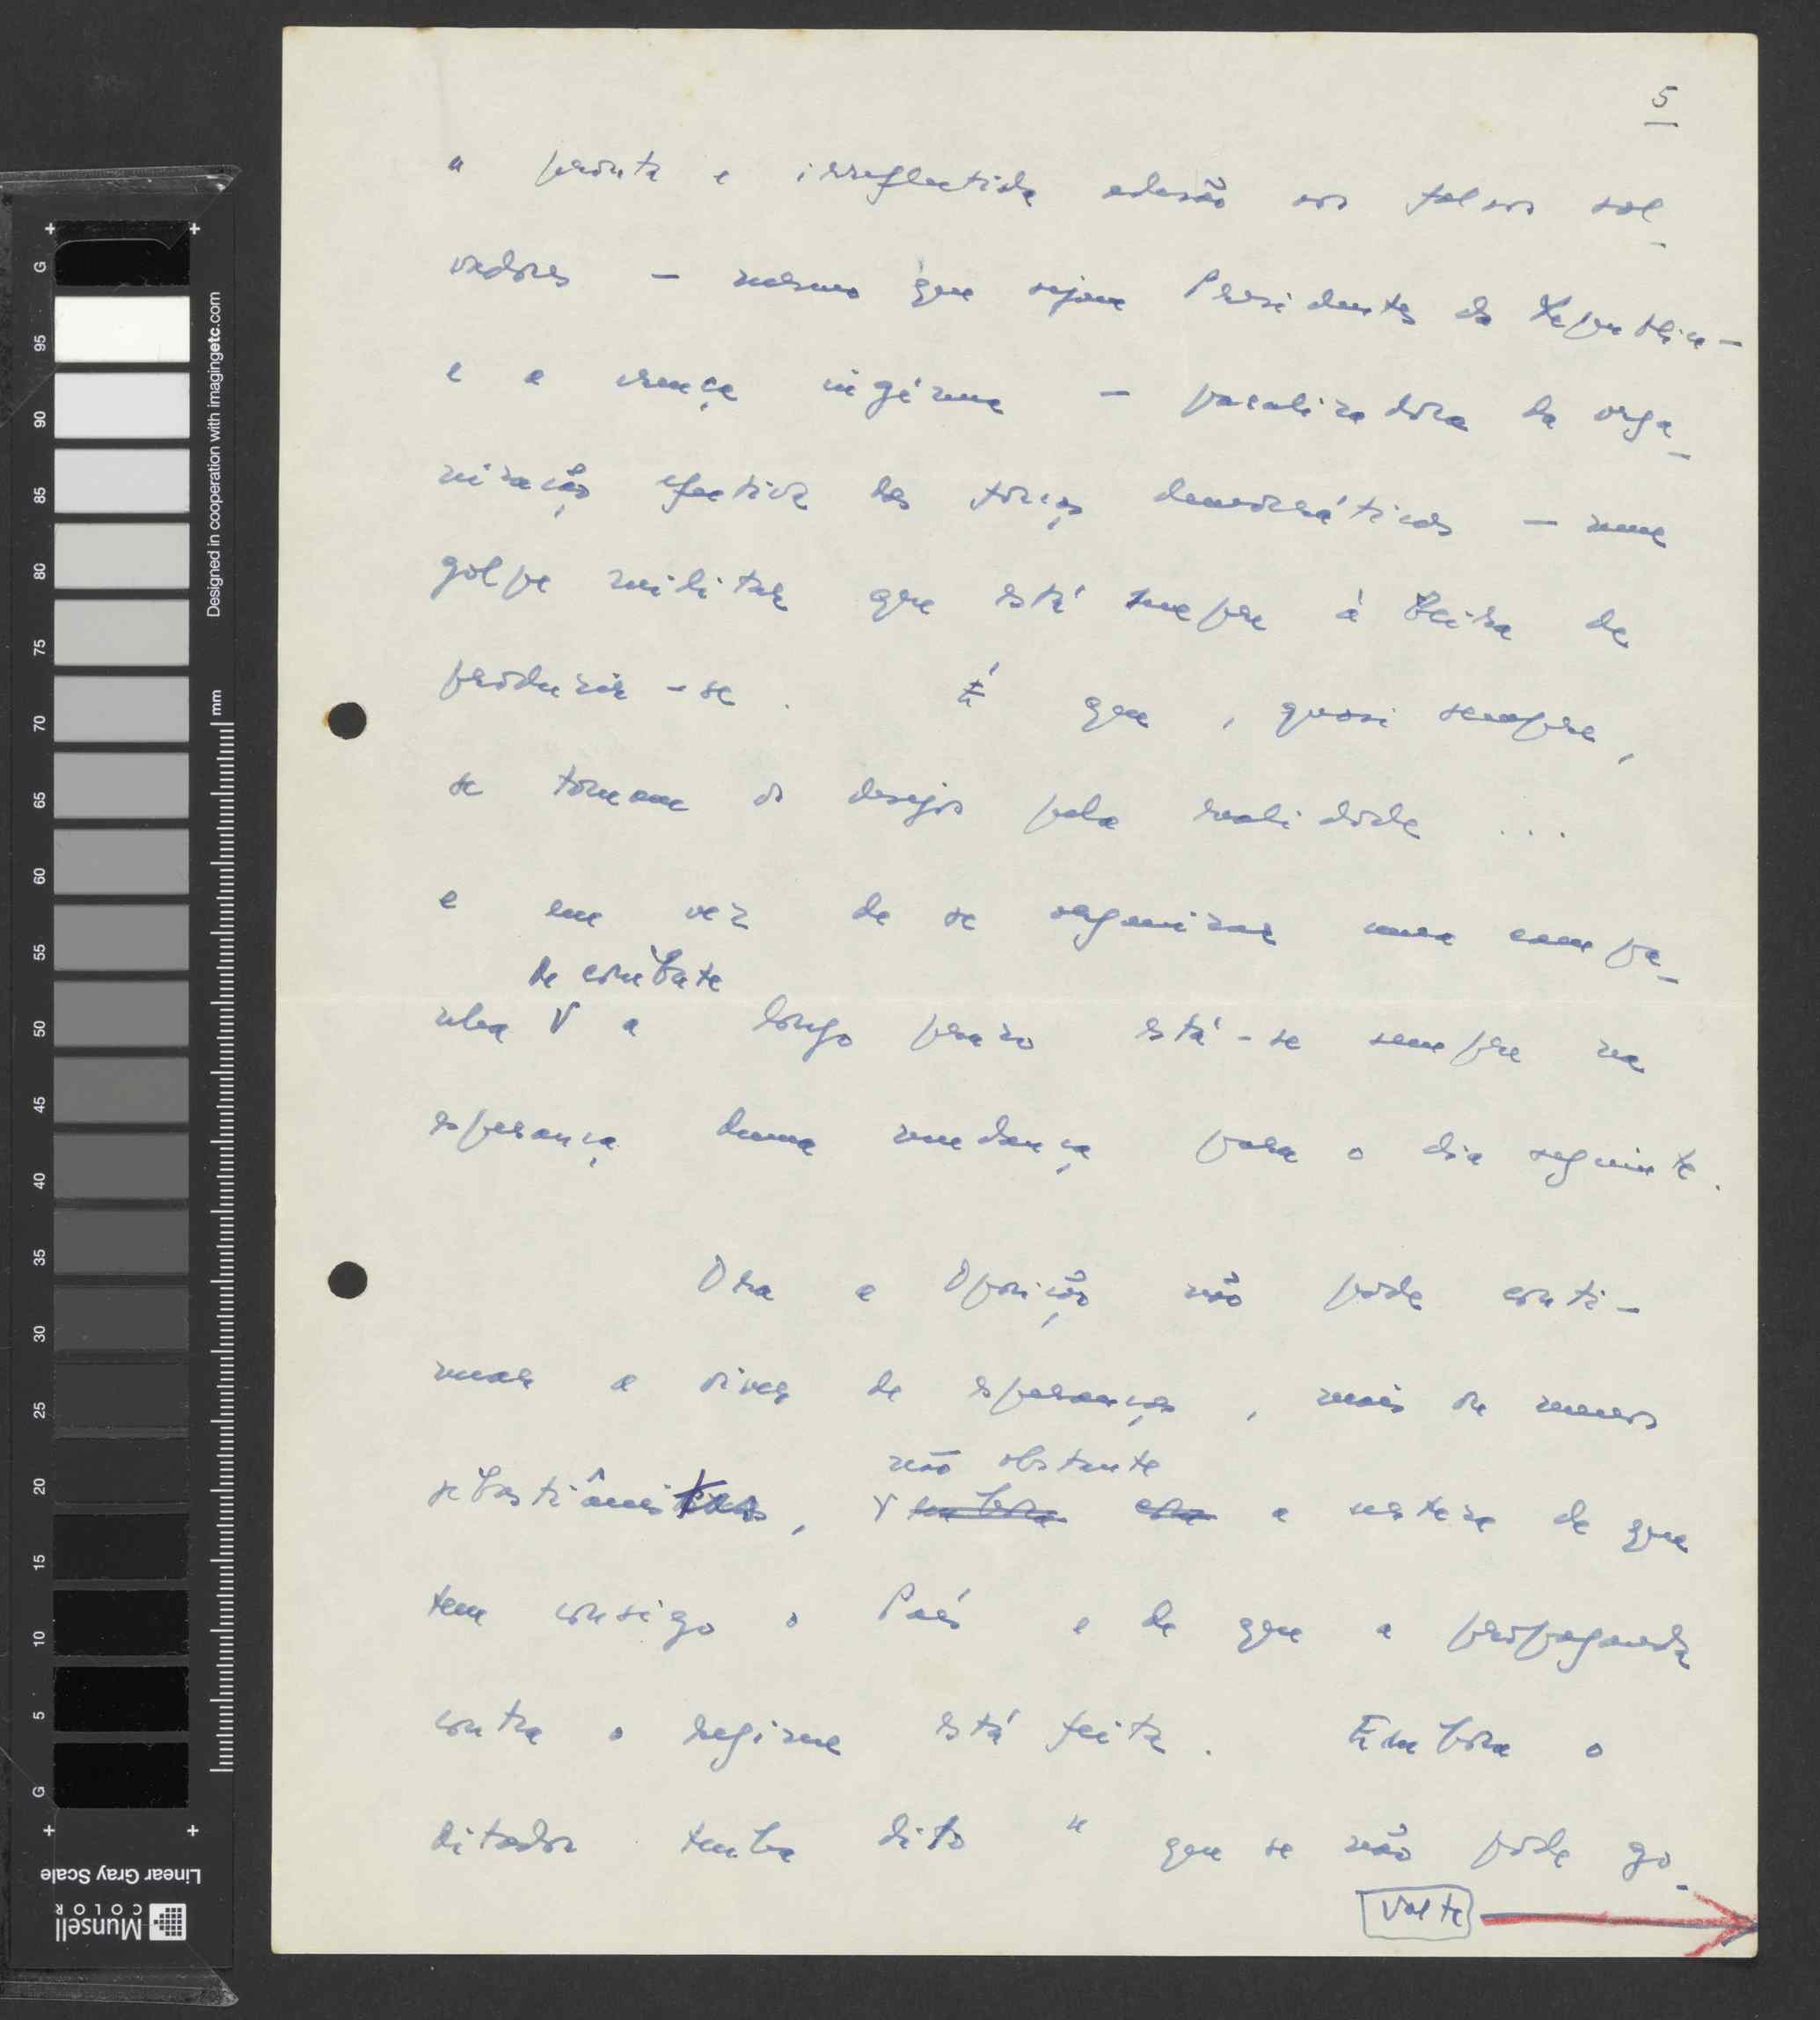 5
a pronta e irreflectida adesão aos falsos sal-
vadores — mesmo que sejam Presidentes da Republica —
e a crença ingénua — paralizadora da orga-
nização efectiva das forças democráticas — num
golpe militar que está sempre à beira de
produzir-se. É que, quasi sempre,
se tomam os desejos pela realidade ...
e em vez de se organizar uma campa-
de combate
nha V a longo prazo está-se sempre na
esperança duma mudança para o dia seguinte.
Ora a Oposição não pode conti-
nuar a viver de esperanças, mais ou menos
não obstante
sebastiânicas, V embora a certeza de que
tem consigo o País e de que a propaganda
contra o regime está feita. Embora o
ditador tenha dito " que se não pode go-
Volte
G 95 90 85 80 75 70 65 60 55 50 45 40 35 30 25 20 15 10 5 G
mm
Designed in cooperation with imagingetc.com
Linear Gray Scale
Munsell
COLOR